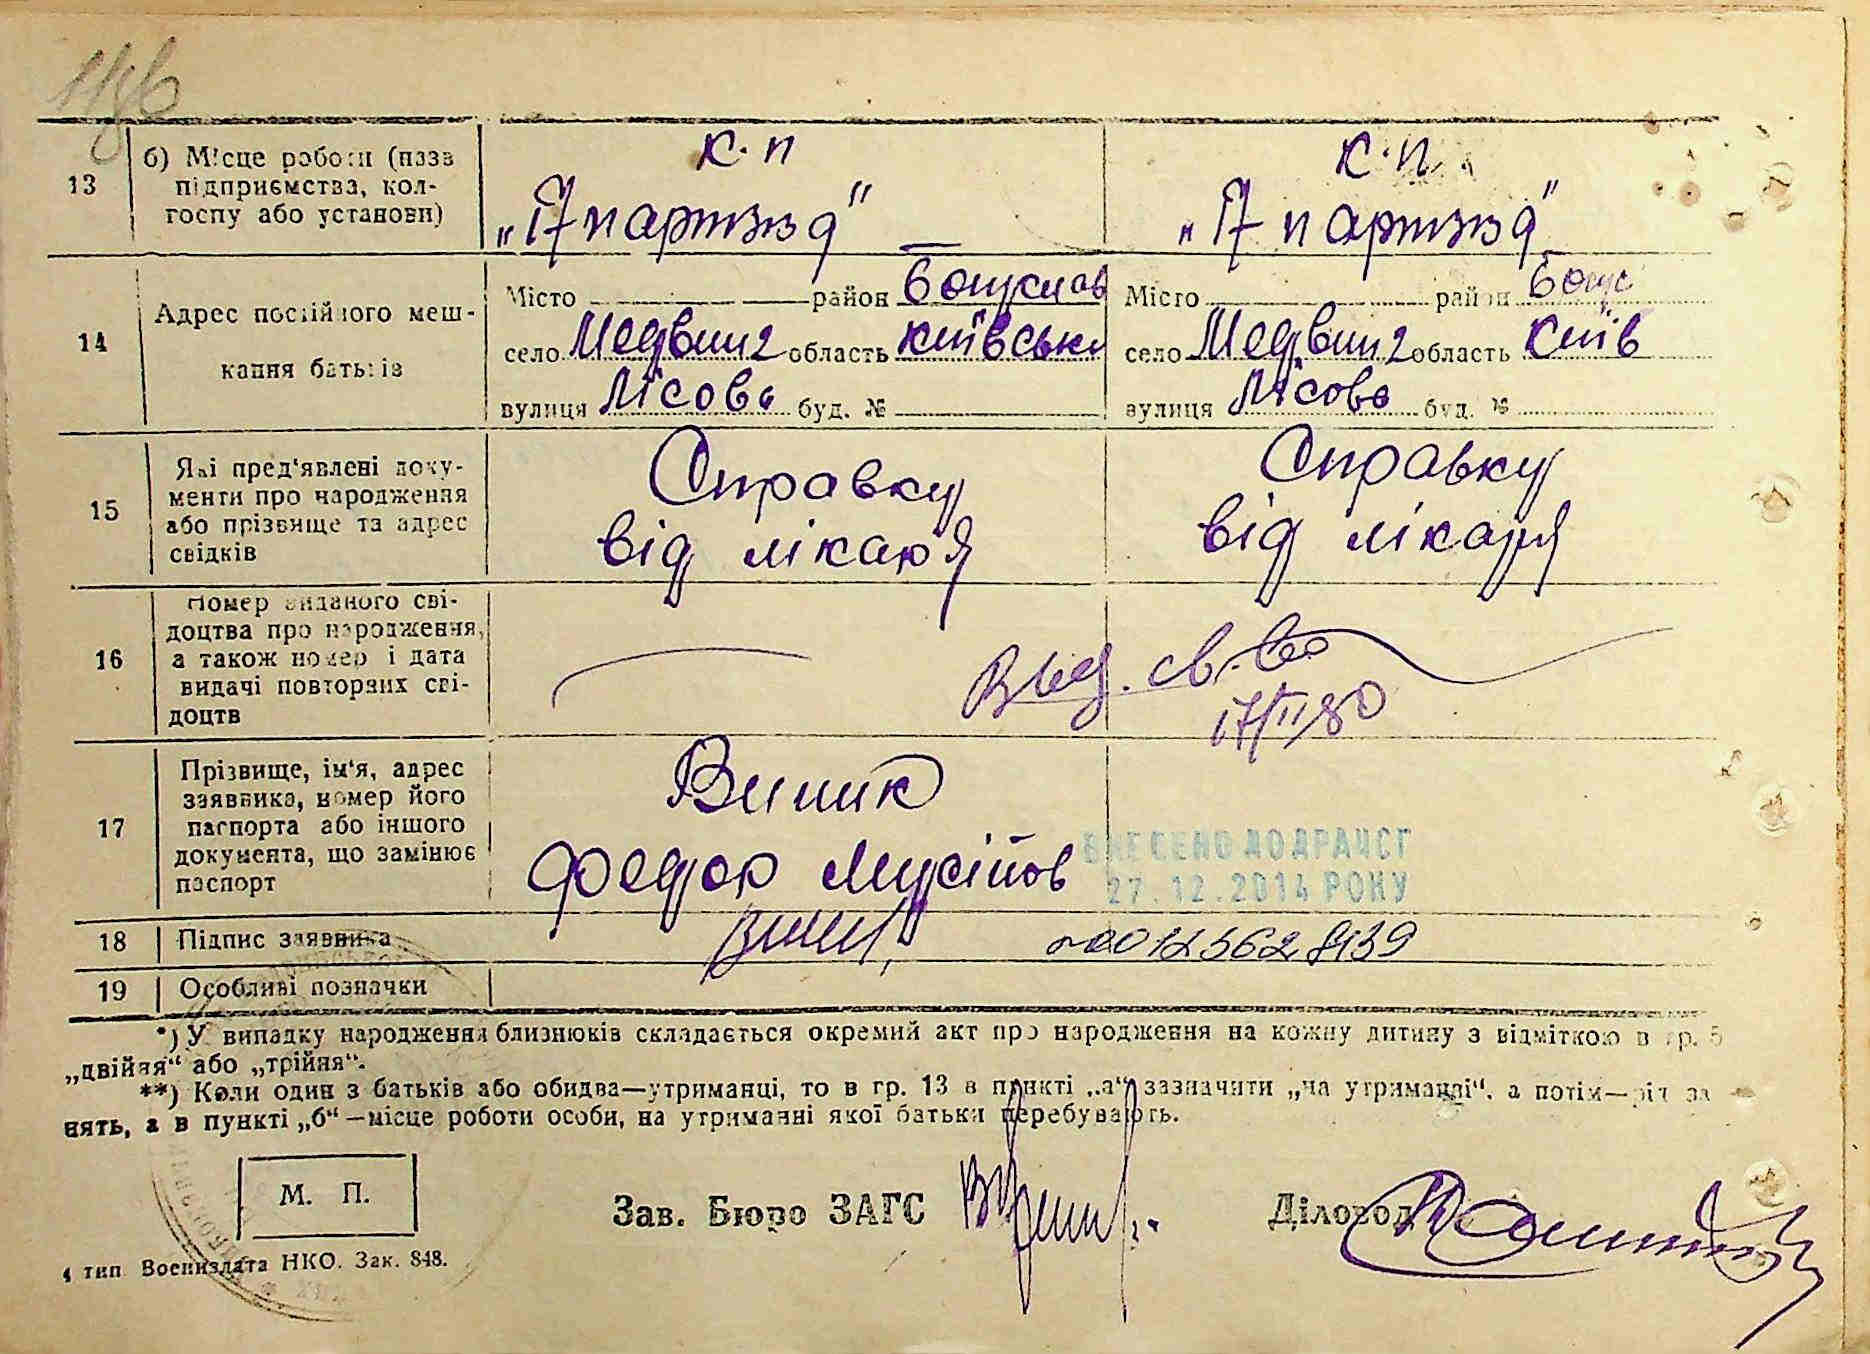 13
б) Місце роботи (назва підприємства, колгоспу або установи)
к. п
„17 партззд"
к. п.
„17 партззд"
14
Адрес постійного мешкання батьків
Місто район Богуслав
село Медвин 2 область Київськ
вулиця Лісова буд. №
Місто район Богус
село Медвин 2 область Київ
вулиця Лісова буд. №
15
Які пред'явлені документи про народження або прізвище та адрес свідків
Справку
від лікаря
Справку
від лікаря
16
Номер виданого свідоцтва про народження, а також номер і дата видачі повторних свідоцтв
Выд. св-во
17/II 80
17
Прізвище, ім'я, адрес заявника, номер його паспорта або іншого документа, що замінює паспорт
Виник
Федор Мусійов
ВНЕСЕНО ДО ДРАЦСГ
27.12.2014 РОКУ
18
Підпис заявника
00125628139
19
Особливі позначки
*) У випадку народження близнюків складається окремий акт про народження на кожну дитину з відміткою в гр. 5
„двійня" або „трійня".
**) Коли один з батьків або обидва—утриманці, то в гр. 13 в пункті „а" зазначити „на утриманні", а потім—рід за
нять, а в пункті „б"—місце роботи особи, на утриманні якої батьки перебувають.
М. П.
Зав. Бюро ЗАГС
Діловод
4 тип Воениздата НКО. Зак. 848.